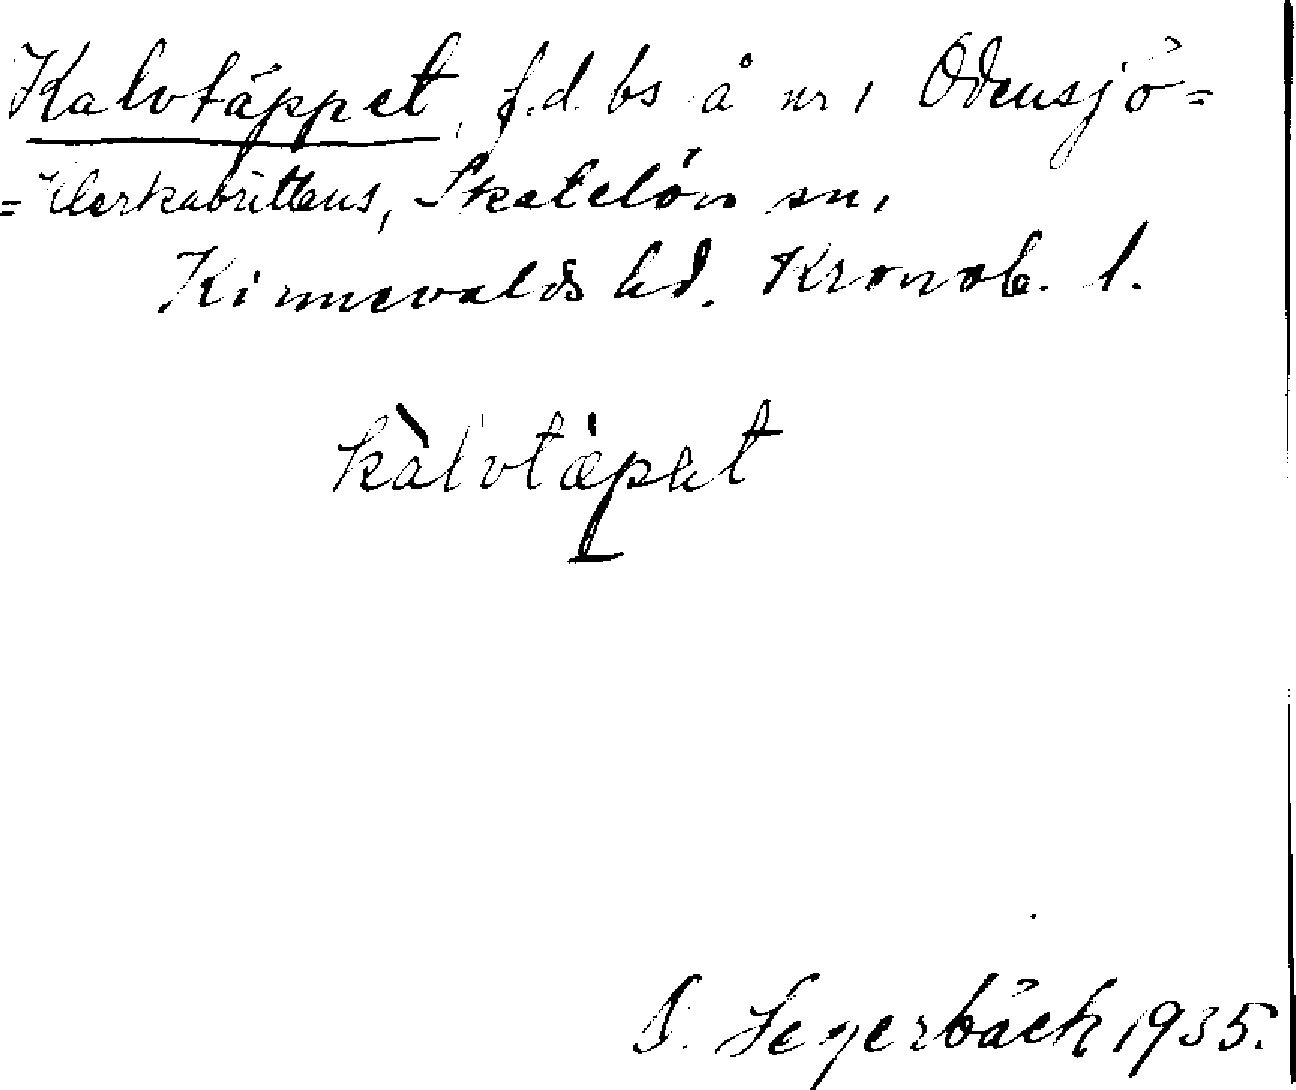 Kalvtäppet, f.d. bs å nr 1 Odensjö=
=Klerkabrittens, Skatelöv sn,
Kinnevalds hd. Kronob. l.
kàlvtæpət
B. Segerbäck 1935.